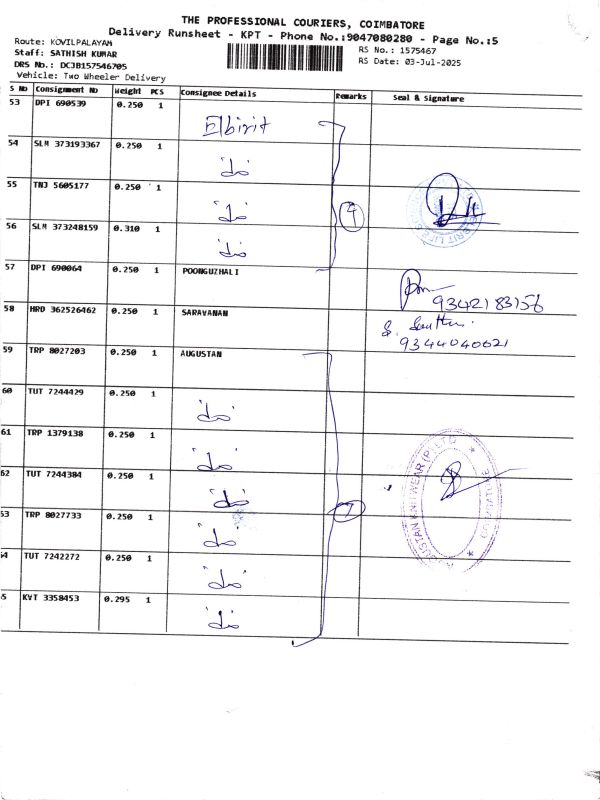 THE PROFESSIONAL COURIERS, COIMBATORE
Delivery Runsheet - KPT - Phone No.:9047080280 - Page No.:5
Route: KOVILPALAYAM
Staff: SATHISH KUMAR
DRS No.: DCJB157546705
Vehicle: Two Wheeler Delivery
RS No.: 1575467
RS Date: 03-Jul-2025
S No Consignment No Weight PCS Consignee Details Remarks Seal & Signature
53 DPI 690539 0.250 1 Elbirit
54 SLM 373193367 0.250 1 "do"
55 TNJ 5605177 0.250 1 "do"
4
56 SLM 373248159 0.310 1 "do"
57 DPI 690064 0.250 1 POONGUZHALI
9342183156
58 HRD 362526462 0.250 1 SARAVANAN
9344040021
59 TRP 8027203 0.250 1 AUGUSTAN
60 TUT 7244429 0.250 1 "do"
61 TRP 1379138 0.250 1 "do"
62 TUT 7244384 0.250 1 "do"
AUGUSTAN KNITWEAR (P) LTD
COIMBATORE
53 TRP 8027733 0.250 1 "do" 7
54 TUT 7242272 0.250 1 "do"
5 KVT 3358453 0.295 1 "do"